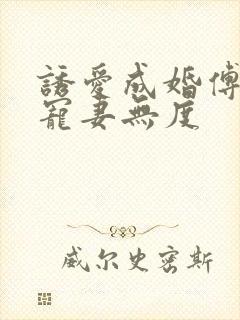 誘愛成婚傅
寵妻無度
威尔史密斯